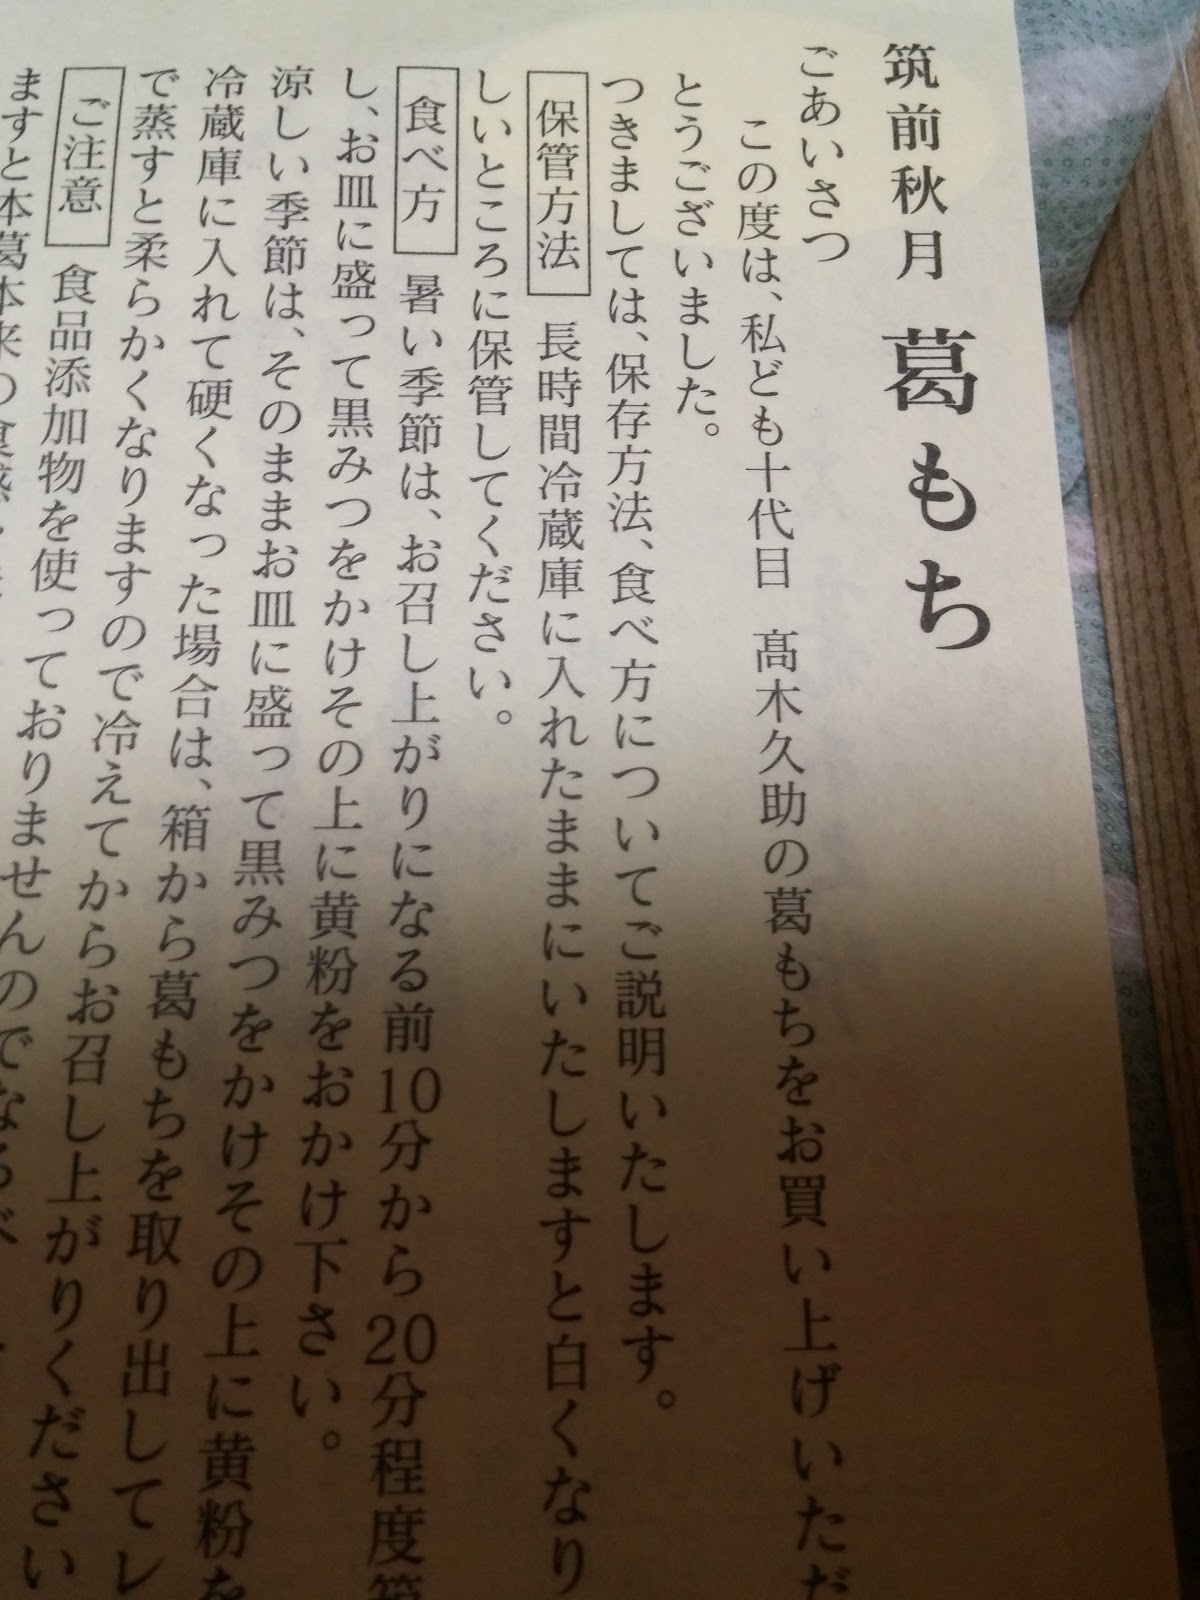 筑前秋月 葛もち
ごあいさつ
この度は、私ども十代目 髙木久助の葛もちをお買い上げいただ
とうございました。
つきましては、保存方法、食べ方についてご説明いたします。
保管方法 長時間冷蔵庫に入れたままにいたしますと白くなり
しいところに保管してください。
食べ方 暑い季節は、お召し上がりになる前10分から20分程度
し、お皿に盛って黒みつをかけその上に黄粉をおかけ下さい。
涼しい季節は、そのままお皿に盛って黒みつをかけその上に黄粉を
冷蔵庫に入れて硬くなった場合は、箱から葛もちを取り出してレ
で蒸すと柔らかくなりますので冷えてからお召し上がりください
ご注意 食品添加物を使っておりませんのでなるべ
ますと本葛本来の食感